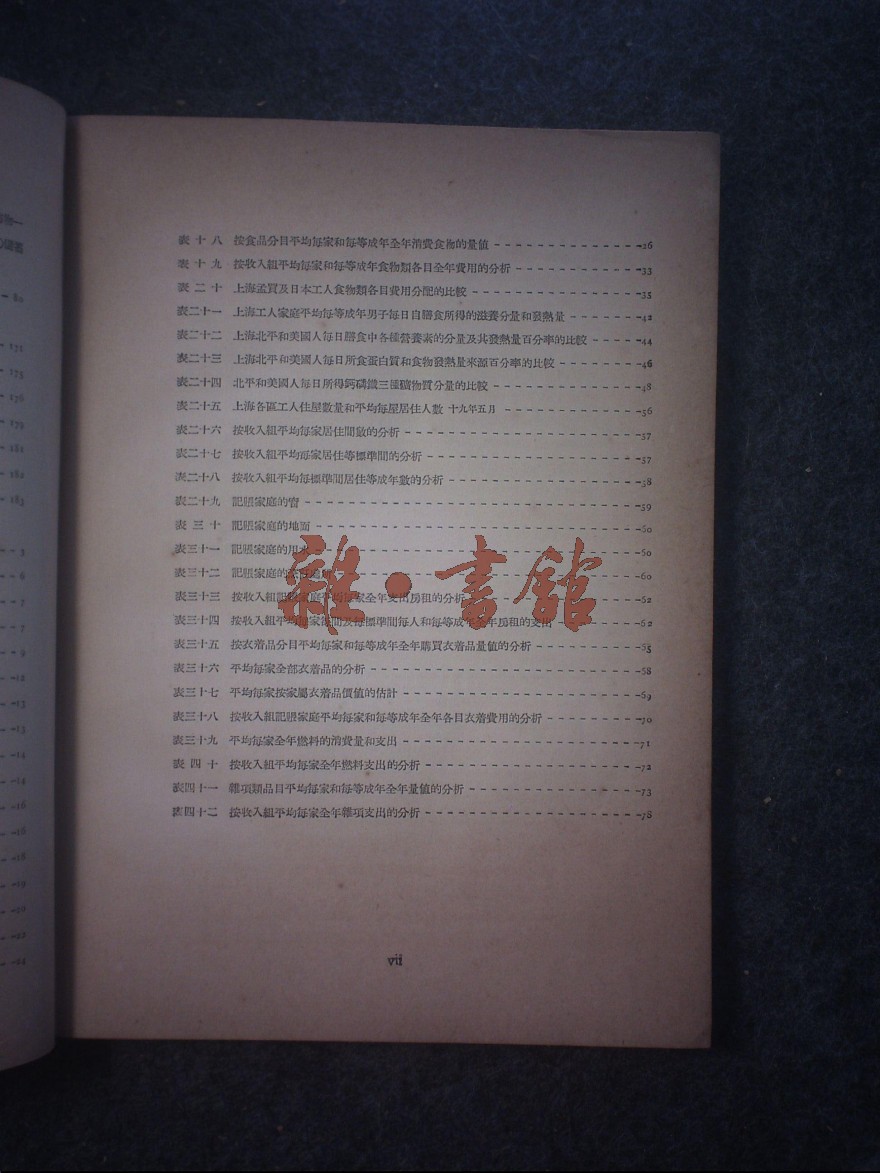 表十八 按食品分目平均每家和每等成年全年消費食物的量値 26
表十九 按收入組平均每家和每等成年食物類各目全年費用的分析 33
表二十 上海孟買及日本工人食物類各目費用分配的比較 35
表二十一 上海工人家庭平均每等成年男子每日自膳食所得的滋養分量和發熱量 42
表二十二 上海北平和美國人每日膳食中各種營養素的分量及其發熱量百分率的比較 44
表二十三 上海北平和美國人每日所食蛋白質和食物發熱量來源百分率的比較 46
表二十四 北平和美國人每日所得鈣磷鐵三種礦物質分量的比較 48
表二十五 上海各區工人住屋數量和平均每屋居住人數 十九年五月 56
表二十六 按收入組平均每家居住間數的分析 57
表二十七 按收入組平均每家居住等標準間的分析 57
表二十八 按收入組平均每標準間居住等成年數的分析 58
表二十九 記賬家庭的窗 59
表三十 記賬家庭的地面 60
表三十一 記賬家庭的用水 60
表三十二 記賬家庭的 60
表三十三 按收入組記賬家庭平均每家全年支出房租的分析 62
表三十四 按收入組平均每家每間及每標準間每人和每等成年全年房租的支出 62
表三十五 按衣着品分目平均每家和每等成年全年購買衣着品量値的分析 65
表三十六 平均每家全部衣着品的分析 68
表三十七 平均每家按家屬衣着品價値的估計 69
表三十八 按收入組記賬家庭平均每家和每等成年全年各目衣着費用的分析 70
表三十九 平均每家全年燃料的消費量和支出 71
表四十 按收入組平均每家全年燃料支出的分析 72
表四十一 雜項類品目平均每家和每等成年全年量値的分析 73
表四十二 按收入組平均每家全年雜項支出的分析 78
雜·書館
vii